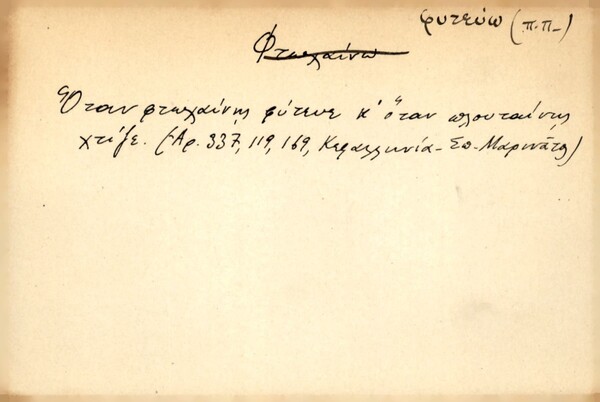 φυτεύω (π.π.)
Φτωχαίνω
Ὅταν φτωχαίνης φύτευε κ' ὅταν πλουταίνης
χτίζε. (Ἀρ. 337, 119, 169, Κεφαλληνία - Σπ. Μαρινᾶτος)